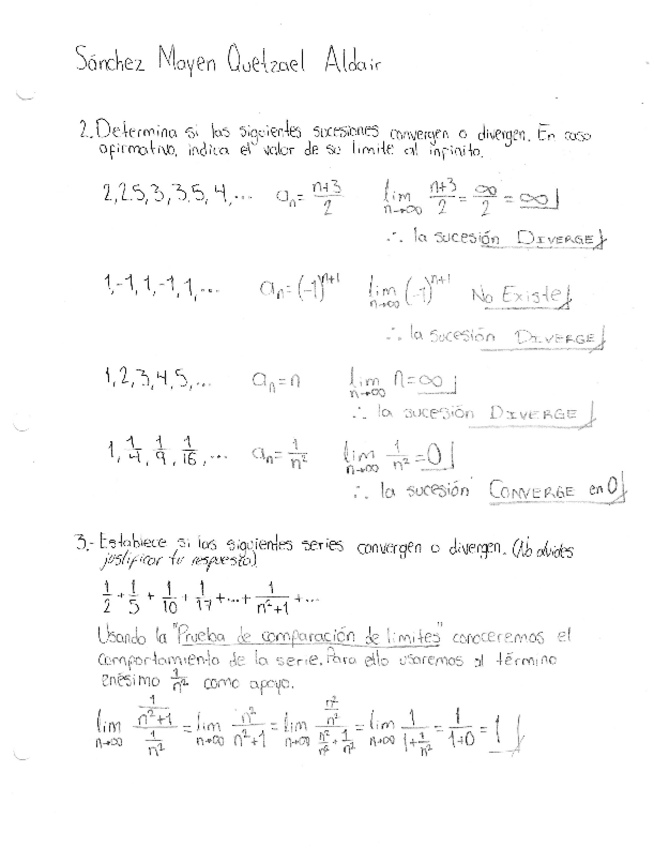 Sánchez Mayen Quetzael Aldair
2. Determina si las siguientes sucesiones convergen o divergen. En caso
afirmativo, indica el valor de su limite al infinito.
2, 2.5, 3, 3.5, 4, ... aₙ = (n+3)/2 lim n→∞ (n+3)/2 = ∞/2 = ∞
∴ la sucesión DIVERGE
1, -1, 1, -1, 1, ... aₙ = (-1)ⁿ⁺¹ lim n→∞ (-1)ⁿ⁺¹ No Existe
∴ la sucesión DIVERGE
1, 2, 3, 4, 5, ... aₙ = n lim n→∞ n = ∞
∴ la sucesión DIVERGE
1, 1/4, 1/9, 1/16, ... aₙ = 1/n² lim n→∞ 1/n² = 0
∴ la sucesión CONVERGE en 0
3.- Establece si las siguientes series convergen o divergen. (No olvides
justificar tu respuesta)
1/2 + 1/5 + 1/10 + 1/17 + ... + 1/(n²+1) + ...
Usando la "Prueba de comparación de limites" conoceremos el
comportamiento de la serie. Para ello usaremos al término
enésimo 1/n² como apoyo.
lim n→∞ (1/(n²+1))/(1/n²) = lim n→∞ n²/(n²+1) = lim n→∞ (n²/n²)/(n²/n² + 1/n²) = lim n→∞ 1/(1+1/n²) = 1/(1+0) = 1